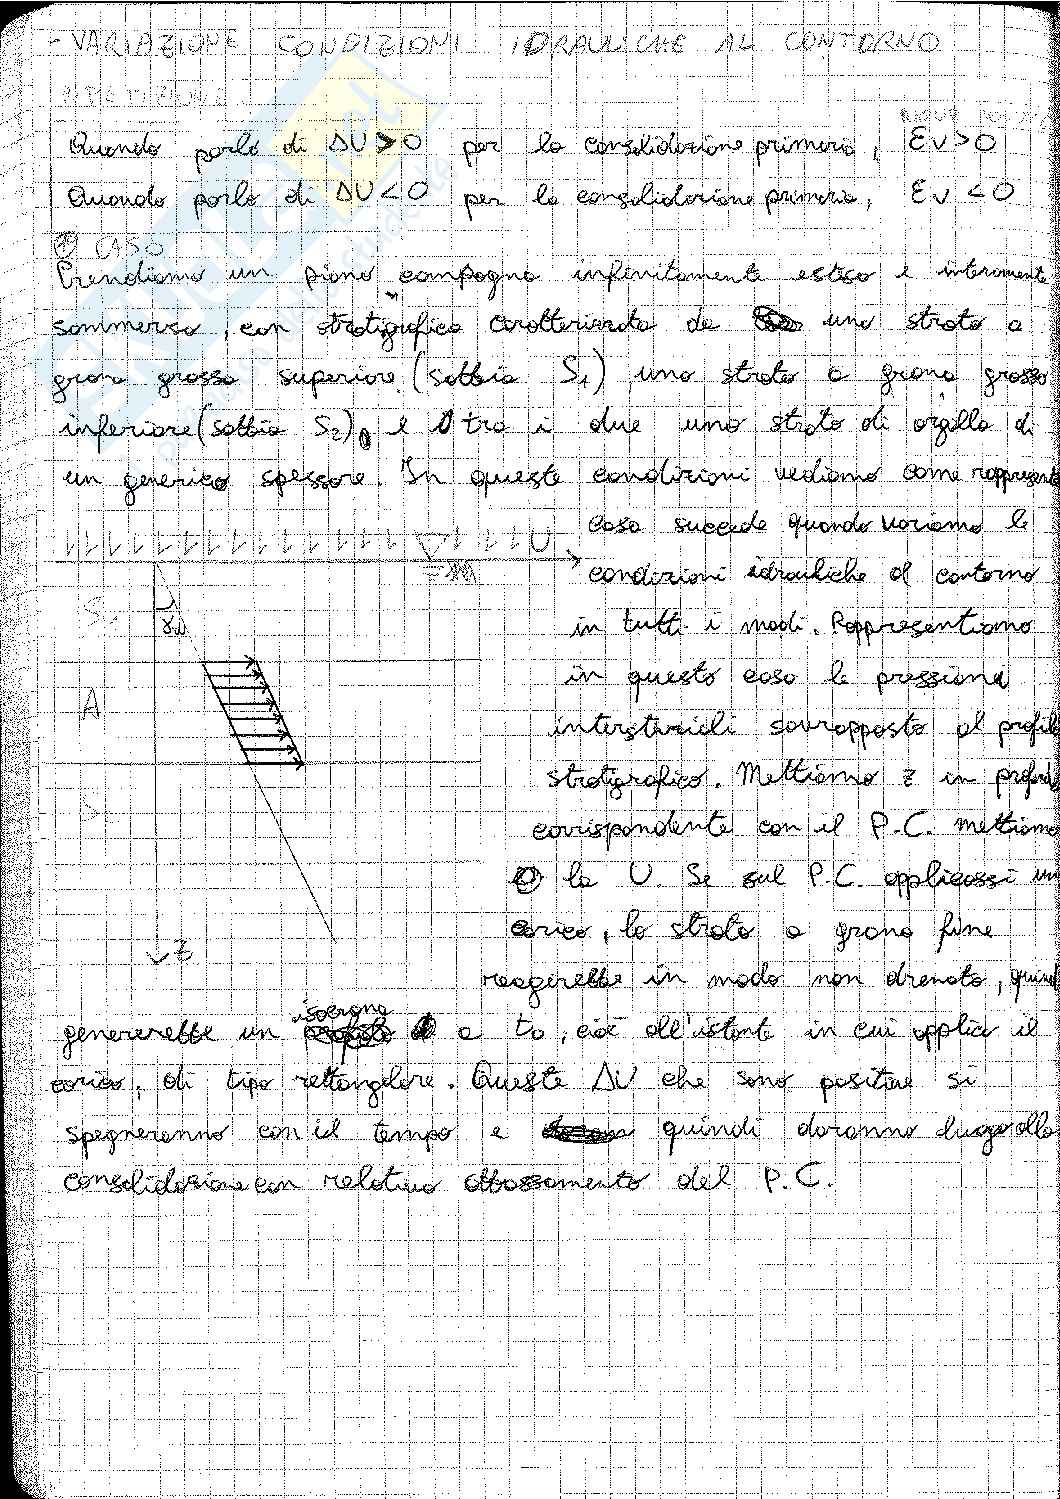 - VARIAZIONE CONDIZIONI IDRAULICHE AL CONTORNO
RIPETIZIONE
Quando parlo di ΔU>0 per la consolidazione primaria, εv>0
Quando parlo di ΔU<0 per la consolidazione primaria, εv<0
1° CASO
Prendiamo un piano campagna infinitamente esteso e interamente
sommerso, con stratigrafica caratterizzata da uno strato a
grana grossa superiore (sabbia S1) uno strato a grana grossa
inferiore (sabbia S2), e tra i due uno strato di argilla di
un generico spessore. In queste condizioni vediamo come rappresent
cosa succede quando variamo le
U
condizioni idrauliche al contorno
S1
γw
in tutti i modi. Rappresentiamo
in questo caso le pressioni
A
interstiziali sovrapposto al profilo
stratigrafico. Mettiamo z in profond
S2
corrispondente con il P.C. mettiamo
la U. Se sul P.C. applicassi un
carico, lo strato a grana fine
z
reagirebbe in modo non drenato, quind
isocrona
genererebbe un a to, cioè all'istante in cui applico il
carico, di tipo rettangolare. Queste ΔU che sono positive si
spegneranno con il tempo e quindi daranno luogo alla
consolidazione con relativo abbassamento del P.C.